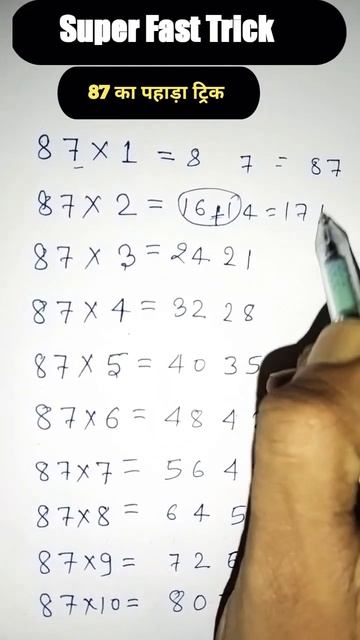 Super Fast Trick
87 का पहाड़ा ट्रिक
87 × 1 = 8 7 = 87
87 × 2 = 16 + 14 = 17
87 × 3 = 24 21
87 × 4 = 32 28
87 × 5 = 40 35
87 × 6 = 48 4
87 × 7 = 56 4
87 × 8 = 64 5
87 × 9 = 72 6
87 × 10 = 80